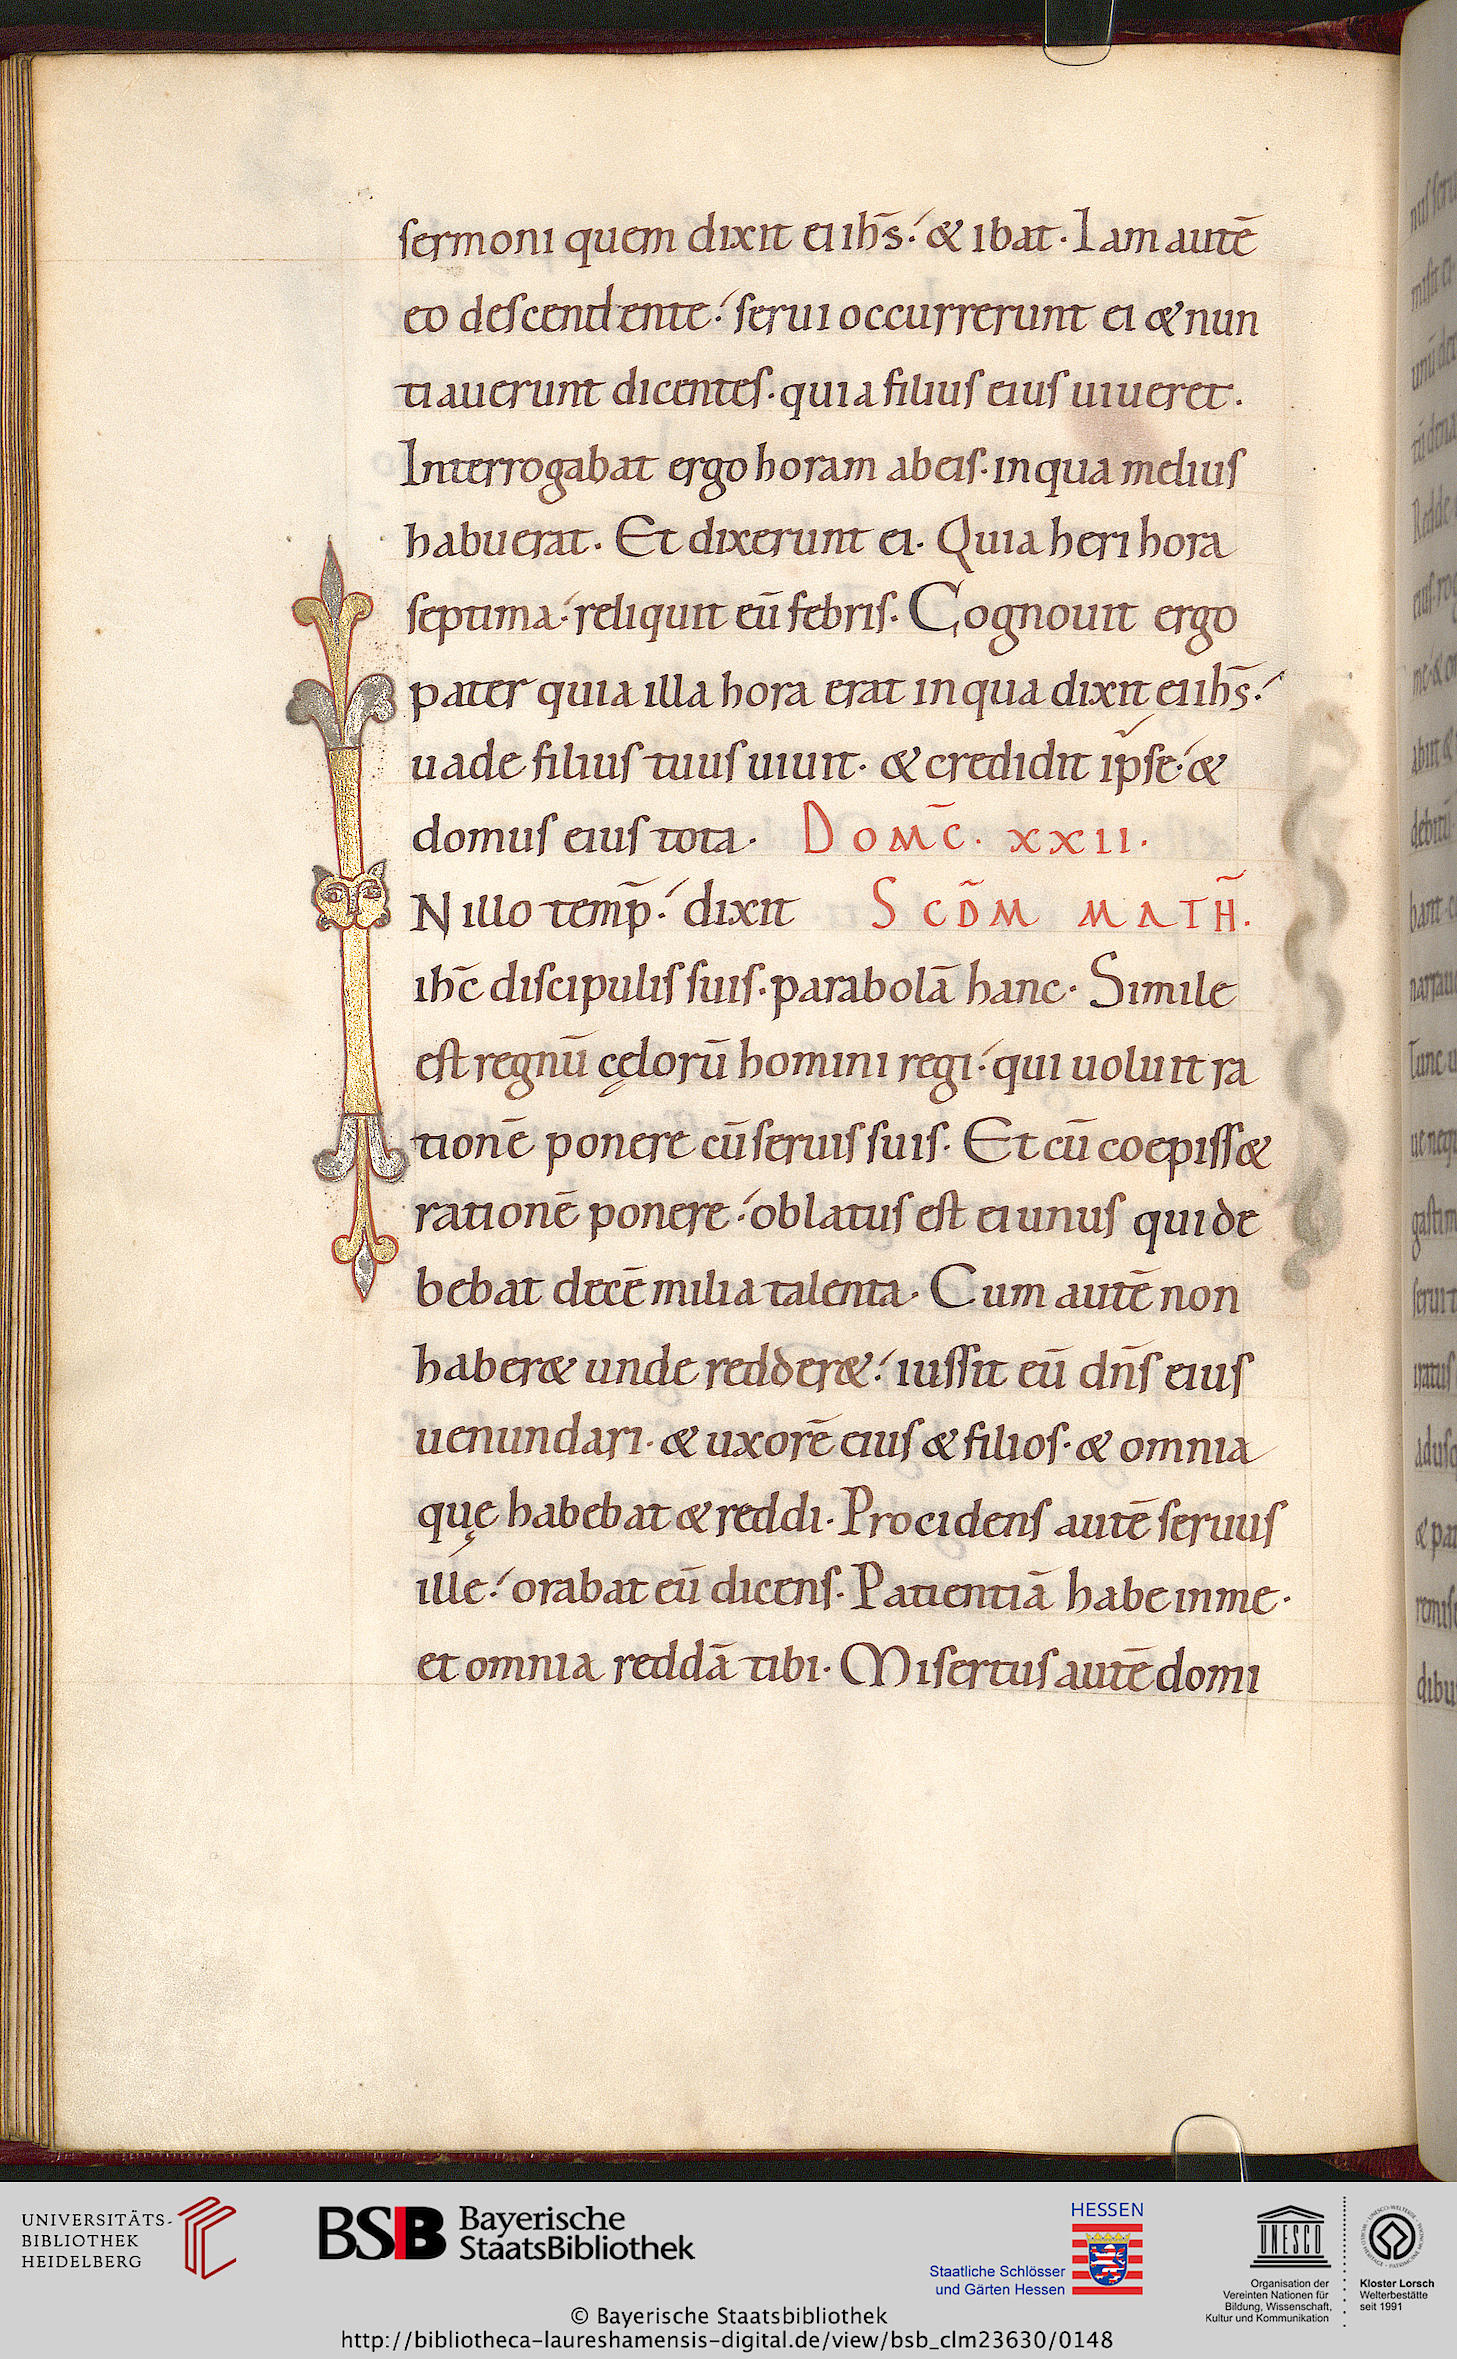 sermoni quem dixit ei ihs̄. & ibat. Iam autē
eo descendente. serui occurrerunt ei & nun
tiauerunt dicentes. quia filius eius uiueret.
Interrogabat ergo horam ab eis. in qua melius
habuerat. Et dixerunt ei. Quia heri hora
septima. reliquit eū febris. Cognouit ergo
pater quia illa hora erat in qua dixit ei ihs̄.
uade filius tuus uiuit. & credidit ip̄se. &
domus eius tota. DOMC̄. XXII.
N illo temp̄. dixit SCD̄M MATH̄.
ihc̄ discipulis suis. parabolā hanc. Simile
est regnū cęlorū homini regi. qui uoluit ra
tionē ponere cū seruis suis. Et cū coepiss&
rationē ponere. oblatus est ei unus qui de
bebat decē milia talenta. Cum autē non
haber& unde redder&. iussit eū dn̄s eius
uenundari. & uxorē eius & filios. & omnia
quę habebat & reddi. Procidens autē seruus
ille. orabat eū dicens. Patientiā habe in me.
et omnia reddā tibi. Misertus autē domi
UNIVERSITÄTS-
BIBLIOTHEK
HEIDELBERG
BSB Bayerische
StaatsBibliothek
HESSEN
Staatliche Schlösser
und Gärten Hessen
UNESCO
Organisation der
Vereinten Nationen für
Bildung, Wissenschaft,
Kultur und Kommunikation
Kloster Lorsch
Welterbestätte
seit 1991
© Bayerische Staatsbibliothek
http://bibliotheca-laureshamensis-digital.de/view/bsb_clm23630/0148